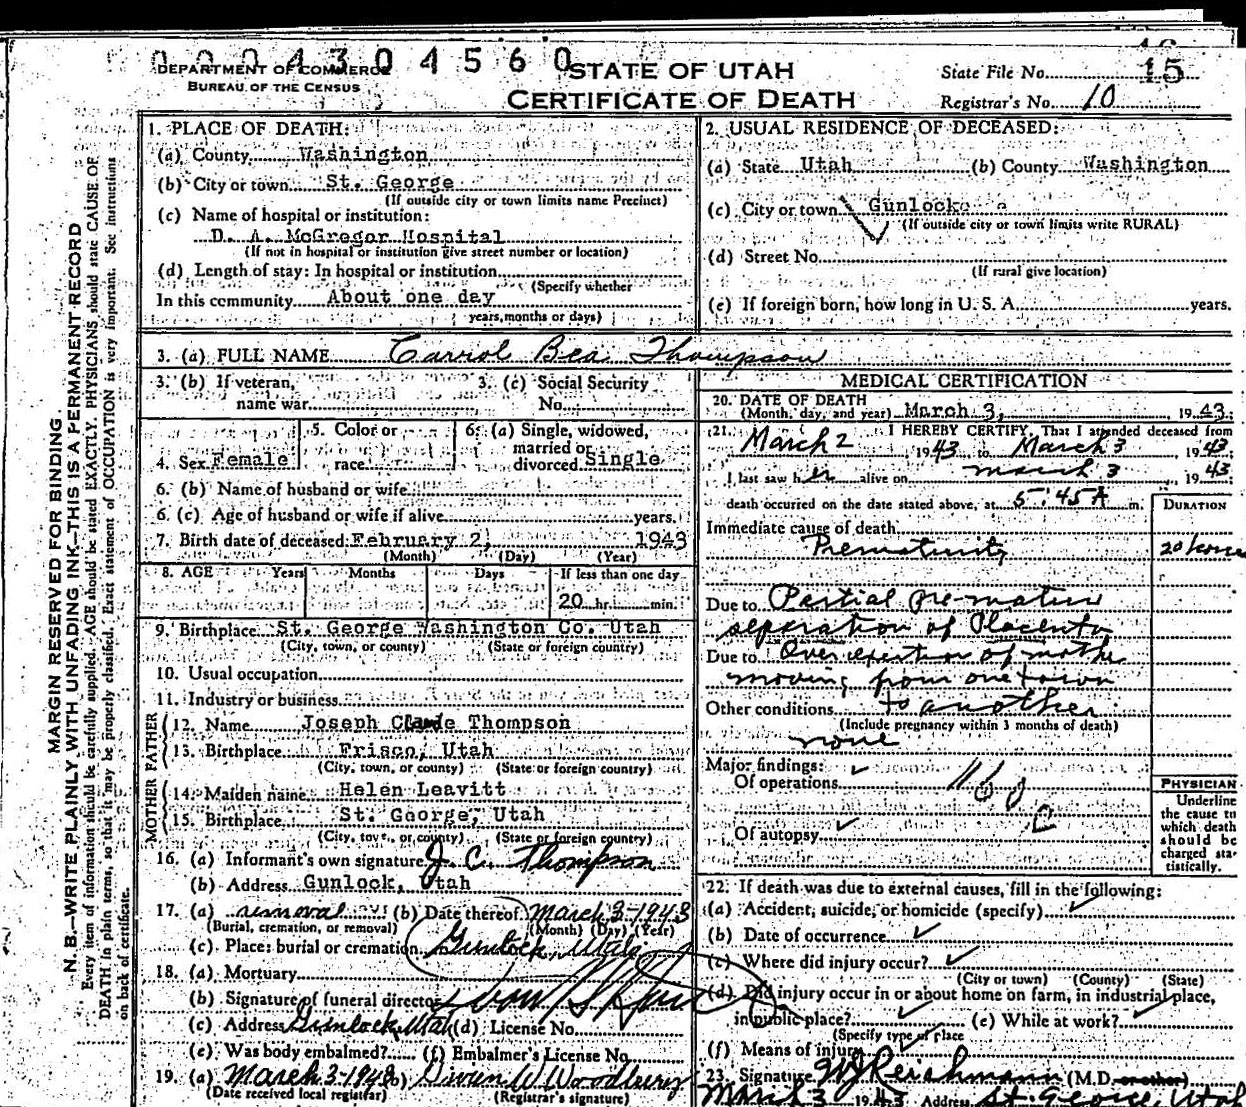 0 0 0 4 3 0 4 5 6 0
DEPARTMENT OF COMMERCE
BUREAU OF THE CENSUS
STATE OF UTAH
CERTIFICATE OF DEATH
State File No. 15
Registrar's No. 10
MARGIN RESERVED FOR BINDING
N. B.—WRITE PLAINLY WITH UNFADING INK—THIS IS A PERMANENT RECORD
Every item of information should be carefully supplied. AGE should be stated EXACTLY. PHYSICIANS should state CAUSE OF
DEATH in plain terms, so that it may be properly classified. Exact statement of OCCUPATION is very important. See instructions
on back of certificate.
1. PLACE OF DEATH:
(a) County Washington
(b) City or town St. George
(If outside city or town limits name Precinct)
(c) Name of hospital or institution:
D. A. McGregor Hospital
(If not in hospital or institution give street number or location)
(d) Length of stay: In hospital or institution
(Specify whether
In this community About one day
years, months or days)
2. USUAL RESIDENCE OF DECEASED:
(a) State Utah (b) County Washington
(c) City or town Gunlock
(If outside city or town limits write RURAL)
(d) Street No.
(If rural give location)
(e) If foreign born, how long in U. S. A. years.
3. (a) FULL NAME Carrol Bea Thompson
3. (b) If veteran,
name war
3. (c) Social Security
No.
4. Sex Female
5. Color or
race
6. (a) Single, widowed,
married or
divorced Single
6. (b) Name of husband or wife
6. (c) Age of husband or wife if alive years.
7. Birth date of deceased February 2, 1943
(Month) (Day) (Year)
8. AGE Years Months Days If less than one day
20 hr. min.
9. Birthplace St. George Washington Co. Utah
(City, town, or county) (State or foreign country)
10. Usual occupation
11. Industry or business
FATHER
12. Name Joseph Claude Thompson
13. Birthplace Frisco, Utah
(City, town, or county) (State or foreign country)
MOTHER
14. Maiden name Helen Leavitt
15. Birthplace St. George, Utah
(City, town, or county) (State or foreign country)
16. (a) Informant's own signature J. C. Thompson
(b) Address Gunlock, Utah
17. (a) removal (b) Date thereof March 3-1943
(Burial, cremation, or removal) (Month) (Day) (Year)
(c) Place: burial or cremation Gunlock, Utah
18. (a) Mortuary
(b) Signature of funeral director
(c) Address Gunlock, Utah (d) License No.
(e) Was body embalmed? (f) Embalmer's License No.
19. (a) March 3-1943 (b) Owen W Woodbury
(Date received local registrar) (Registrar's signature)
MEDICAL CERTIFICATION
20. DATE OF DEATH
(Month, day, and year) March 3, 1943.
21. I HEREBY CERTIFY, That I attended deceased from
March 2 1943 to March 3 1943;
I last saw her alive on march 3 1943;
death occurred on the date stated above, at 5:45 A m.
DURATION
Immediate cause of death
Prematurity 20 hours
Due to Partial pre-mature
separation of Placenta
Due to Over exertion of mother
moving from one town
Other conditions to another
(Include pregnancy within 3 months of death)
none
Major findings:
Of operations
Of autopsy
PHYSICIAN
Underline
the cause to
which death
should be
charged sta-
tistically.
22. If death was due to external causes, fill in the following:
(a) Accident, suicide, or homicide (specify)
(b) Date of occurrence
(c) Where did injury occur?
(City or town) (County) (State)
(d) Did injury occur in or about home on farm, in industrial place,
in public place? (e) While at work?
(Specify type of place
(f) Means of injury
23. Signature W J Reichmann (M.D. or other)
March 3 1943 Address St. George, Utah